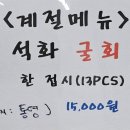 <계절메뉴>
석화 굴회
한 접시(13PCS)
: 통영) 15,000원